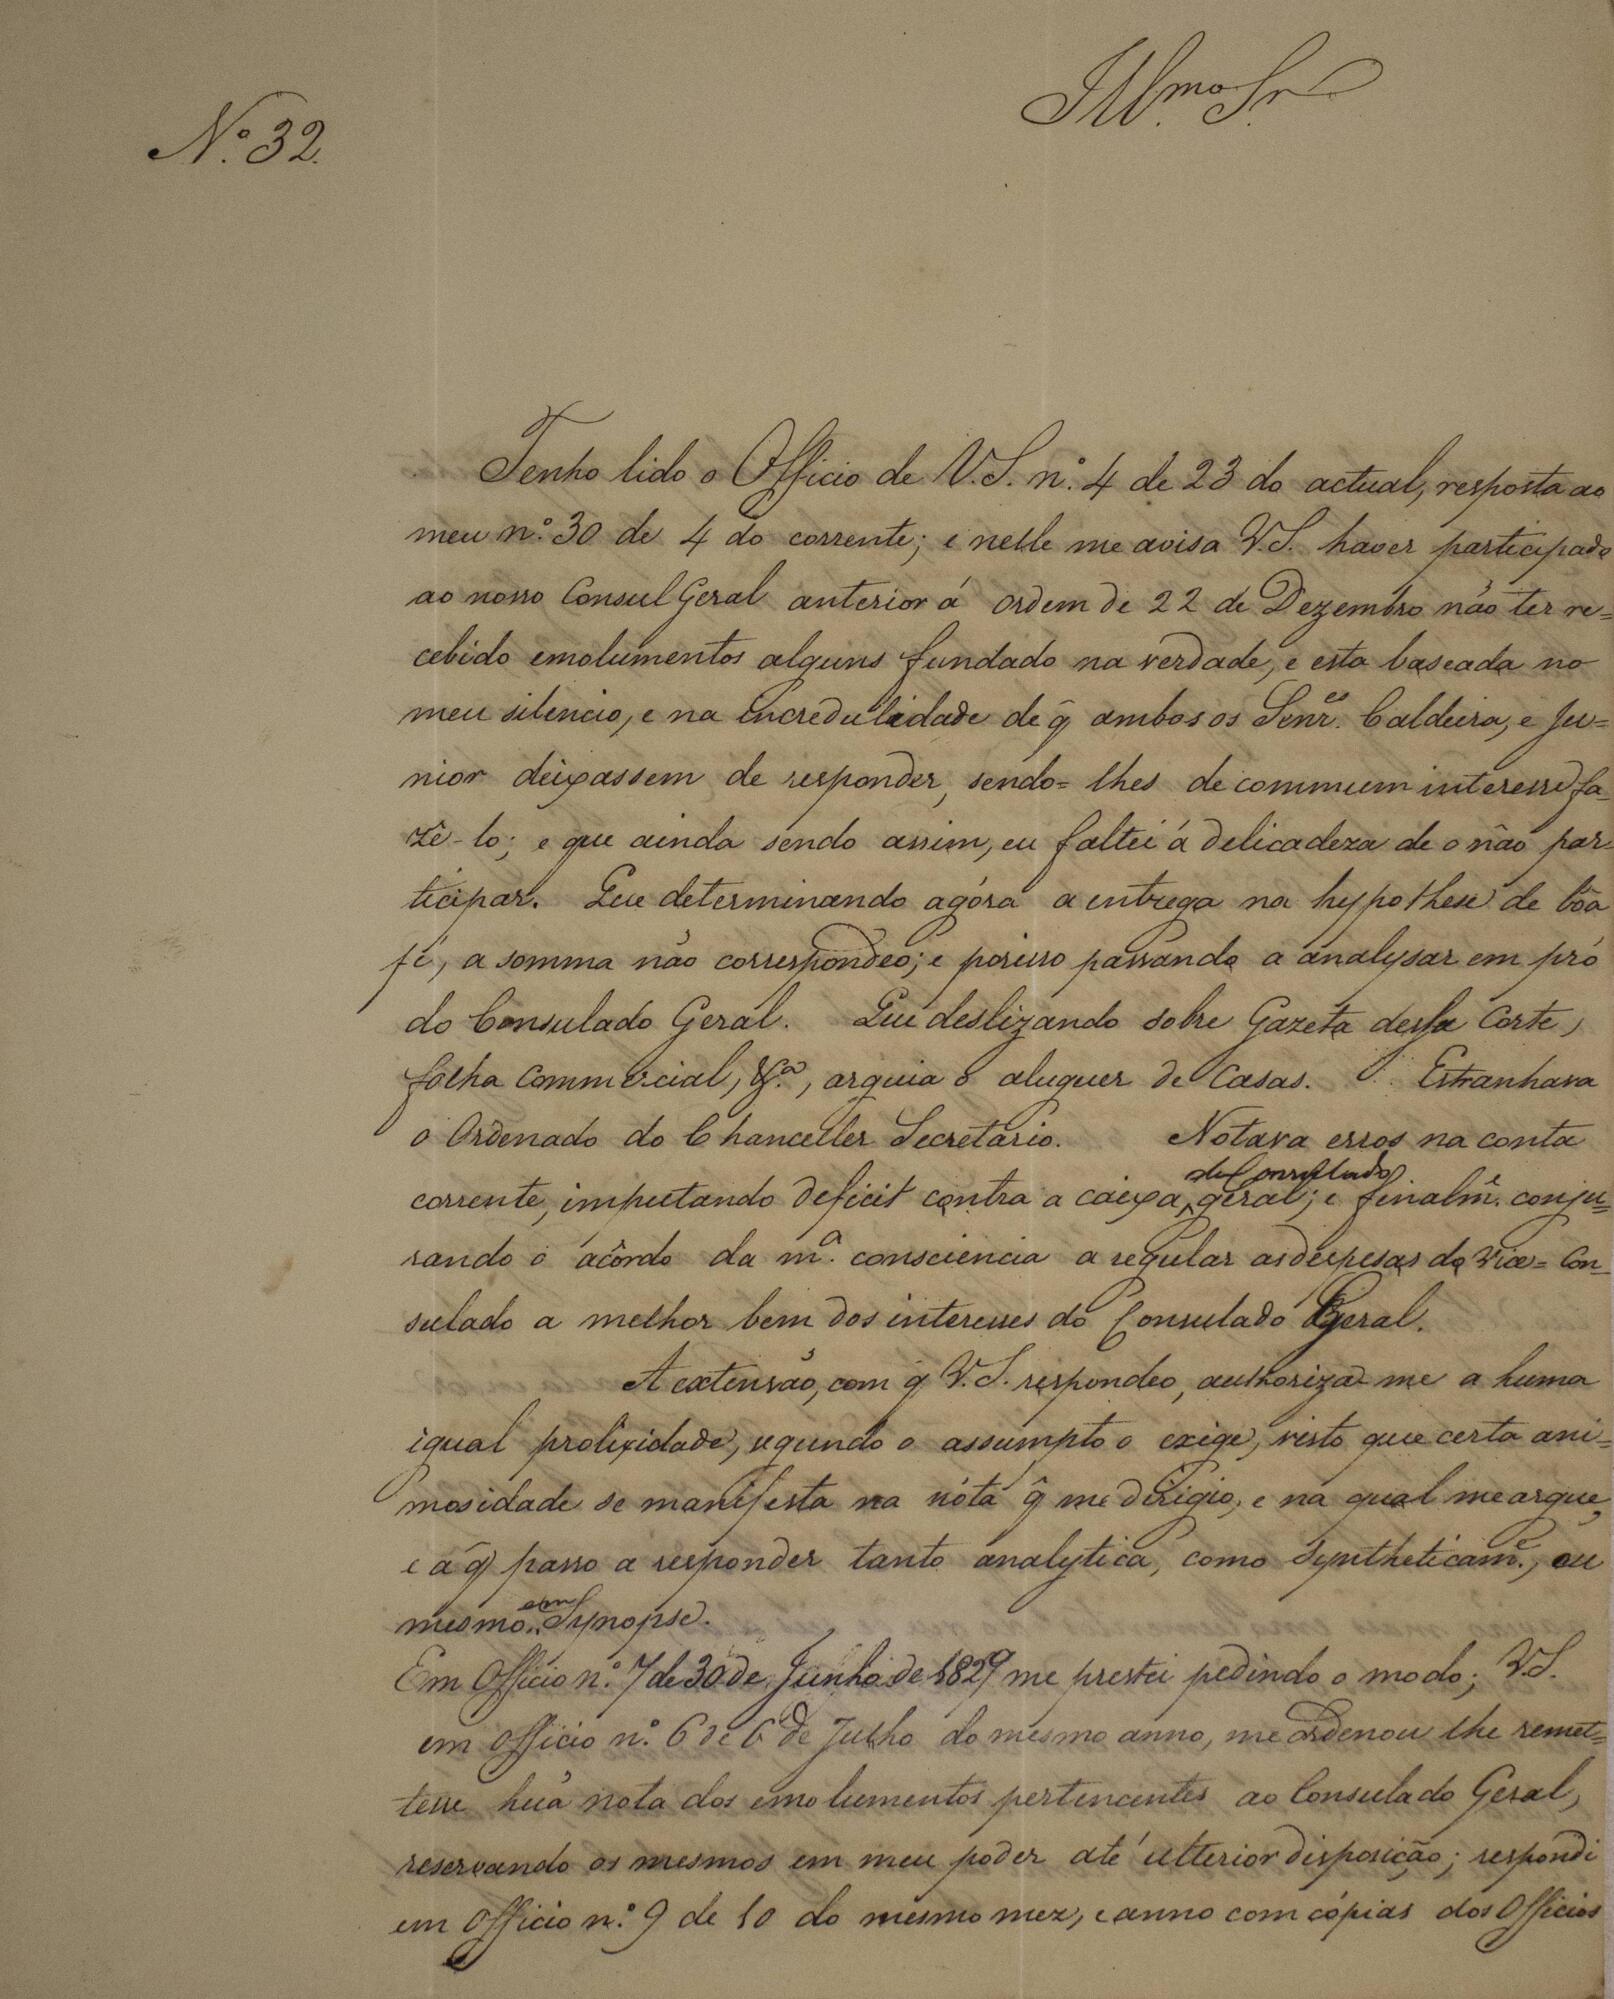 Illmo. Sr.
N.º 32.
Tenho lido o Officio de V.S. nº. 4 de 23 do actual, resposta ao
meu nº. 30 de 4 do corrente; e nelle me avisa V.S. haver participado
ao nosso Consul Geral anterior á ordem de 22 de Dezembro não ter re=
cebido emolumentos alguns fundado na verdade, e esta baseada no
meu silencio, e na incredulidade de q̃ ambos os Senr.es Caldeira, e Ju=
nior deixassem de responder, sendo=lhes de commum interesse fa=
zê-lo; e que ainda sendo assim, eu faltei á delicadeza de o não par=
ticipar. Que determinando agóra a entrega na hypothese de bôa
fé, a somma não correspondeo; e porisso passando a analysar em pró
do Consulado Geral. Que deslizando sobre Gazeta desta Corte,
folha Commercial, &.ª, arguia o aluguer de Casas. Estranhava
o Ordenado do Chanceller Secretario. Notava erros na conta
corrente, imputando deficit contra a caixa do Consulado geral; e finalm.e conju=
rando o acôrdo da m.ª consciencia a regular as despesas do Vice=Con=
sulado a melhor bem dos interesses do Consulado Geral.
A extensão, com q̃ V.S. respondeo, authoriza-me a huma
igual prolixidade, segundo o assumpto o exige, visto que certa ani=
mosidade se manifesta na nóta q̃ me dirigio, e na qual me argue,
e a q̃ passo a responder tanto analytica, como Syntheticam.e, ou
mesmo em Synopse.
Em Officio nº. 7 de 30 de Junho de 1829 me prestei pedindo o modo; V.S.
em Officio nº. 6 de 6 de Julho do mesmo anno, me Ordenou lhe remet=
tesse huã nota dos emolumentos pertencentes ao Consulado Geral,
reservando os mesmos em meu poder até ulterior disposição; respondi
em Officio nº. 9 de 10 do mesmo mez, e anno com cópias dos Officios